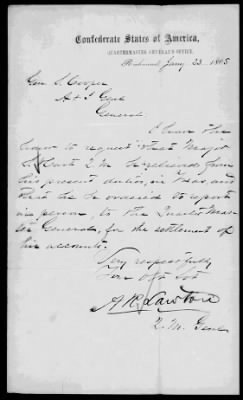 Confederate States of America,
QUARTERMASTER GENERAL'S OFFICE,
Richmond, Jany 23. 1865
Gen S. Cooper
A & I Genl
General.
I have the
honor to request that Major
Hart Q.M. be relieved from
his present duties, in Texas, and
that he be ordered to report
in person, to the Quarter Mas-
ter General, for the settlement of
his accounts.
Very respectfully
Your Obt Svt
A.R. Lawton
Q. M. Genl